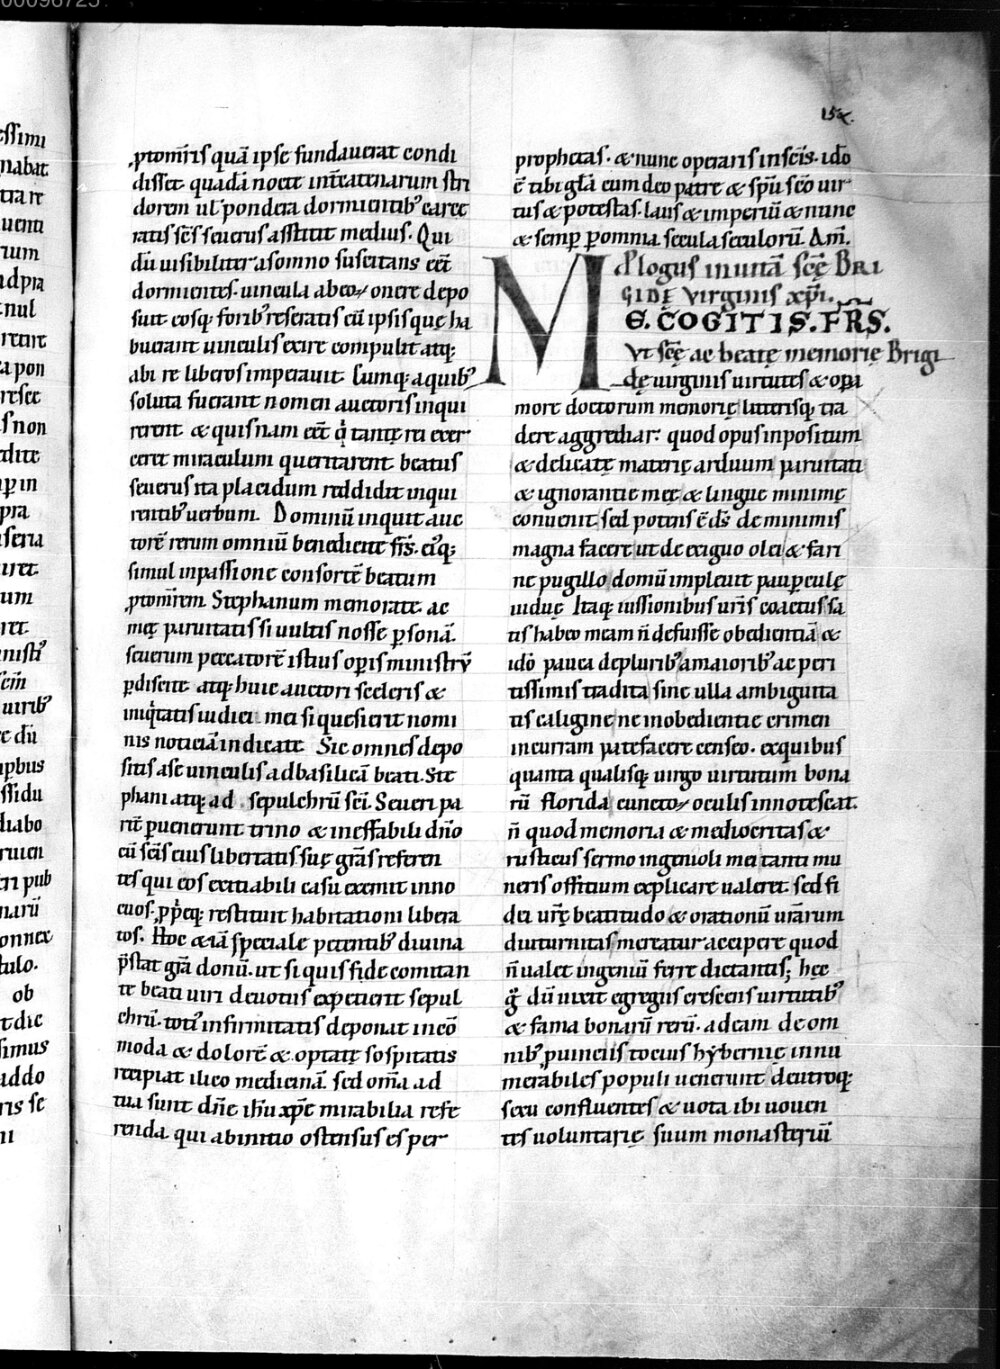 ꝓtom̄ris quā ipse fundauerat condi
disset. quadā nocte int̄ catenarum stri
dorem ul' pondera dormientib; carce
ratis sc̄s seuerus asstitit medius. Qui
dū uisibilit̄ a somno suscitans eēt
dormientes. uincula abeoꝝ onere depo
suit eosq; forib; reseratis cū ipsisque ha
buerant uinculis exire compulit atq;
abire liberos imperauit. Cumq; a quib;
soluta fuerant nomen auctoris inqui
rerent & quisnam eēt q tantę rei exer
ceret miraculum queritarent beatus
seuerus ita placidum reddidit inqui
rentib; uerbum. Dominū inquit auc
torē rerum omniū benedicite frs̄. eiq;
simul in passione consortē beatum
ꝓtom̄rem Stephanum memorate. ac
meę paruitatis si uultis nosse ꝑsonā.
seuerum peccatorē istius oꝑis ministrū
ꝑdiscite atq; huic auctori sceleris &
iniq̇tatis iudici mei si quesierit nomi
nis noticiā indicate. Sic omnes depo
sitis a se uinculis ad basilicā beati Ste
phani atq; ad sepulchrū sc̄i Seueri pa
rit̄ ꝑuenerunt trino & ineffabili dn̄o
cū sc̄is eius libertatis suę grās referen
tes qui eos exitiabili casu exemit inno
cuos. ꝓp̄eq; restituit habitationi libera
tos. Hoc & iā speciale petentib; diuina
p̄stat grā donū. ut si quis fide comitan
te beati uiri deuotus expetierit sepul
chrū. tot' infirmitatis deponat in eō
moda & dolorē & optatę sospitatis
recipiat ilico medicinā. sed om̄a ad
tua sunt dn̄e ih̄u xp̄e mirabilia refe
renda qui ab initio ostensus es per
prophetas. & nunc operaris in sc̄is. idō
ē tibi glā cum deo patre & sp̄u sc̄o uir
tus & potestas. laus & imperiū & nunc
& semꝑ ꝑ omnia secula seculorū. Am̄.
Plogus in uitā sc̄ę Bri
gidę virginis xp̄i.
ME. COGITIS. FRS.
Vt sc̄ę ac beatę memorię Brigi
dę uirginis uirtutes & oꝑa
more doctorum memorię litterisq; tra
dere aggrediar. quod opus inpositum
& delicatę materię arduum paruitati
& ignorantie meę & lingue minime
conuenit sed potens ē dš de minimis
magna facere ut de exiguo olei & fari
ne pugillo domū impleuit pauꝑculę
uiduę. Itaq; iussionibus uris̄ coactus sa
tis habeo meam n̄ defuisse obedientiā &
idō pauca de plurib; a maiorib; ac peri
tissimis tradita sine ulla ambiguita
tis caligine ne inobedientie crimen
incurram patefacere censeo. ex quibus
quanta qualisq; uirgo uirtutum bona
rū florida cunctoꝝ oculis innotescat.
n̄ quod memoria & mediocritas &
rusticus sermo ingenioli mei tanti mu
neris offitium explicare ualeret. sed fi
dei ur̄ę beatitudo & orationū ur̄arum
diuturnitas mereatur accipere quod
n̄ ualet ingeniū ferre dictantis; hęc
g̊ dū uixit egregiis crescens uirtutib;
& fama bonarū rerū. ad eam de om
nib; ꝓuinciis tocius hybernię innu
merabiles populi uenerunt de utroq;
sexu confluentes & uota ibi uouen
tes uoluntarię suum monasteriū